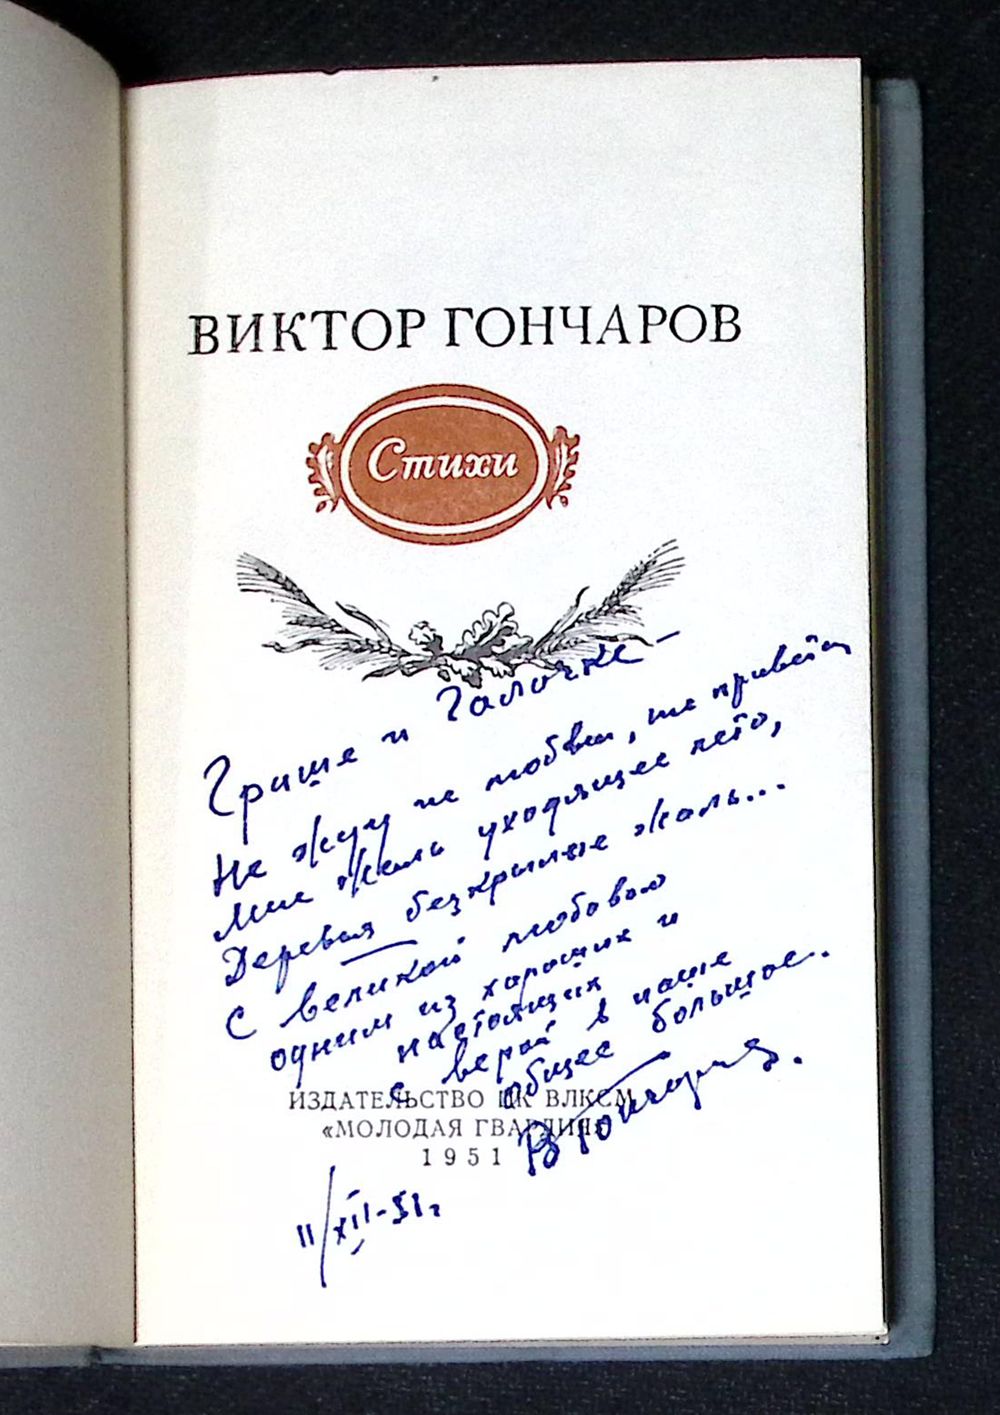 ВИКТОР ГОНЧАРОВ
Стихи
Грише и Галочке –
Не жду ни любви, ни привета,
Мне жаль уходящее лето,
Деревья безкрылые жаль...
С великой любовью
одним из хороших и
настоящих
с верой в наше
общее большое..
ИЗДАТЕЛЬСТВО ЦК ВЛКСМ
«МОЛОДАЯ ГВАРДИЯ»
1951
В Гончаров.
11/XII-51г